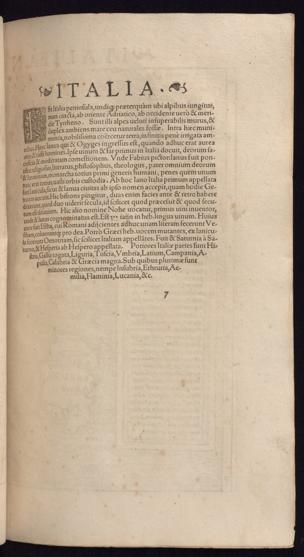 ITALIA.
Est Italia peninsula, undiq; præterquam ubi alpibus iungitur,
mari cincta, ab oriente Adriatico, ab occidente verò & meri-
die Tyrrheno. Sunt illi alpes veluti insuperabilis murus, &
duplex ambiens mare ceu naturales fossæ. Intra hæc muni-
menta, nobilissima coërcetur terra, infinitis penè irrigata am-
nibus. Hanc Ianus qui & Ogyges ingressus est, quando adhuc erat aurea
ætas, & iusti homines. Ipse unum & far primus in Italia docuit, deorum fa-
& moderatum comestionem. Vnde Fabius pictor: Ianus fuit pon-
religiosus, humanus, philosophus, theologus, pater omnium deorum
& hominum, monarcha totius primi generis humani, penes quem unum
erat totius orbis custodia. Ab hoc Iano Italia primum appellata
est Ianicula, sicut & Ianua ciuitas ab ipso nomen accepit, quam hodie Ge-
nuam uocant. Hic bifrons pingitur, duas enim facies ante & retro habere
uidere secula, id scilicet quod præcessit & quod secu-
turum est diluuium. Hic alio nomine Nohe uocatur, primus uini inuentor,
unde & Ianus cognominatus est. Est enim in heb. lingua uinum. Huius
uxor fuit Esta, cui Romani adijcientes adhuc unam literam fecerunt Ve-
stam, colentes eam pro dea. Porrò Græci heb. uocem mutantes, ex Ianicu-
la fecerunt Oenotriam, sic scilicet Italiam appellantes. Fuit & Saturnia à Sa-
turno, & Hesperia ab Hespero appellata. Potiores Italiæ partes sunt: Hi-
stria, Gallia togata, Liguria, Tuscia, Vmbria, Latium, Campania, A-
pulia, Calabria & Græcia magna. Sub quibus plurimæ sunt
minores regiones, nempe Insubria, Ethruria, Ae-
milia, Flaminia, Lucania, &c.
7